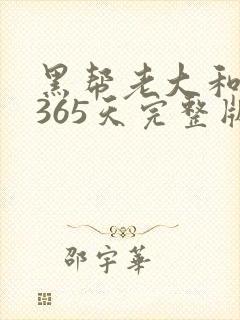 黑帮老大和
365天完整版
邵宇华